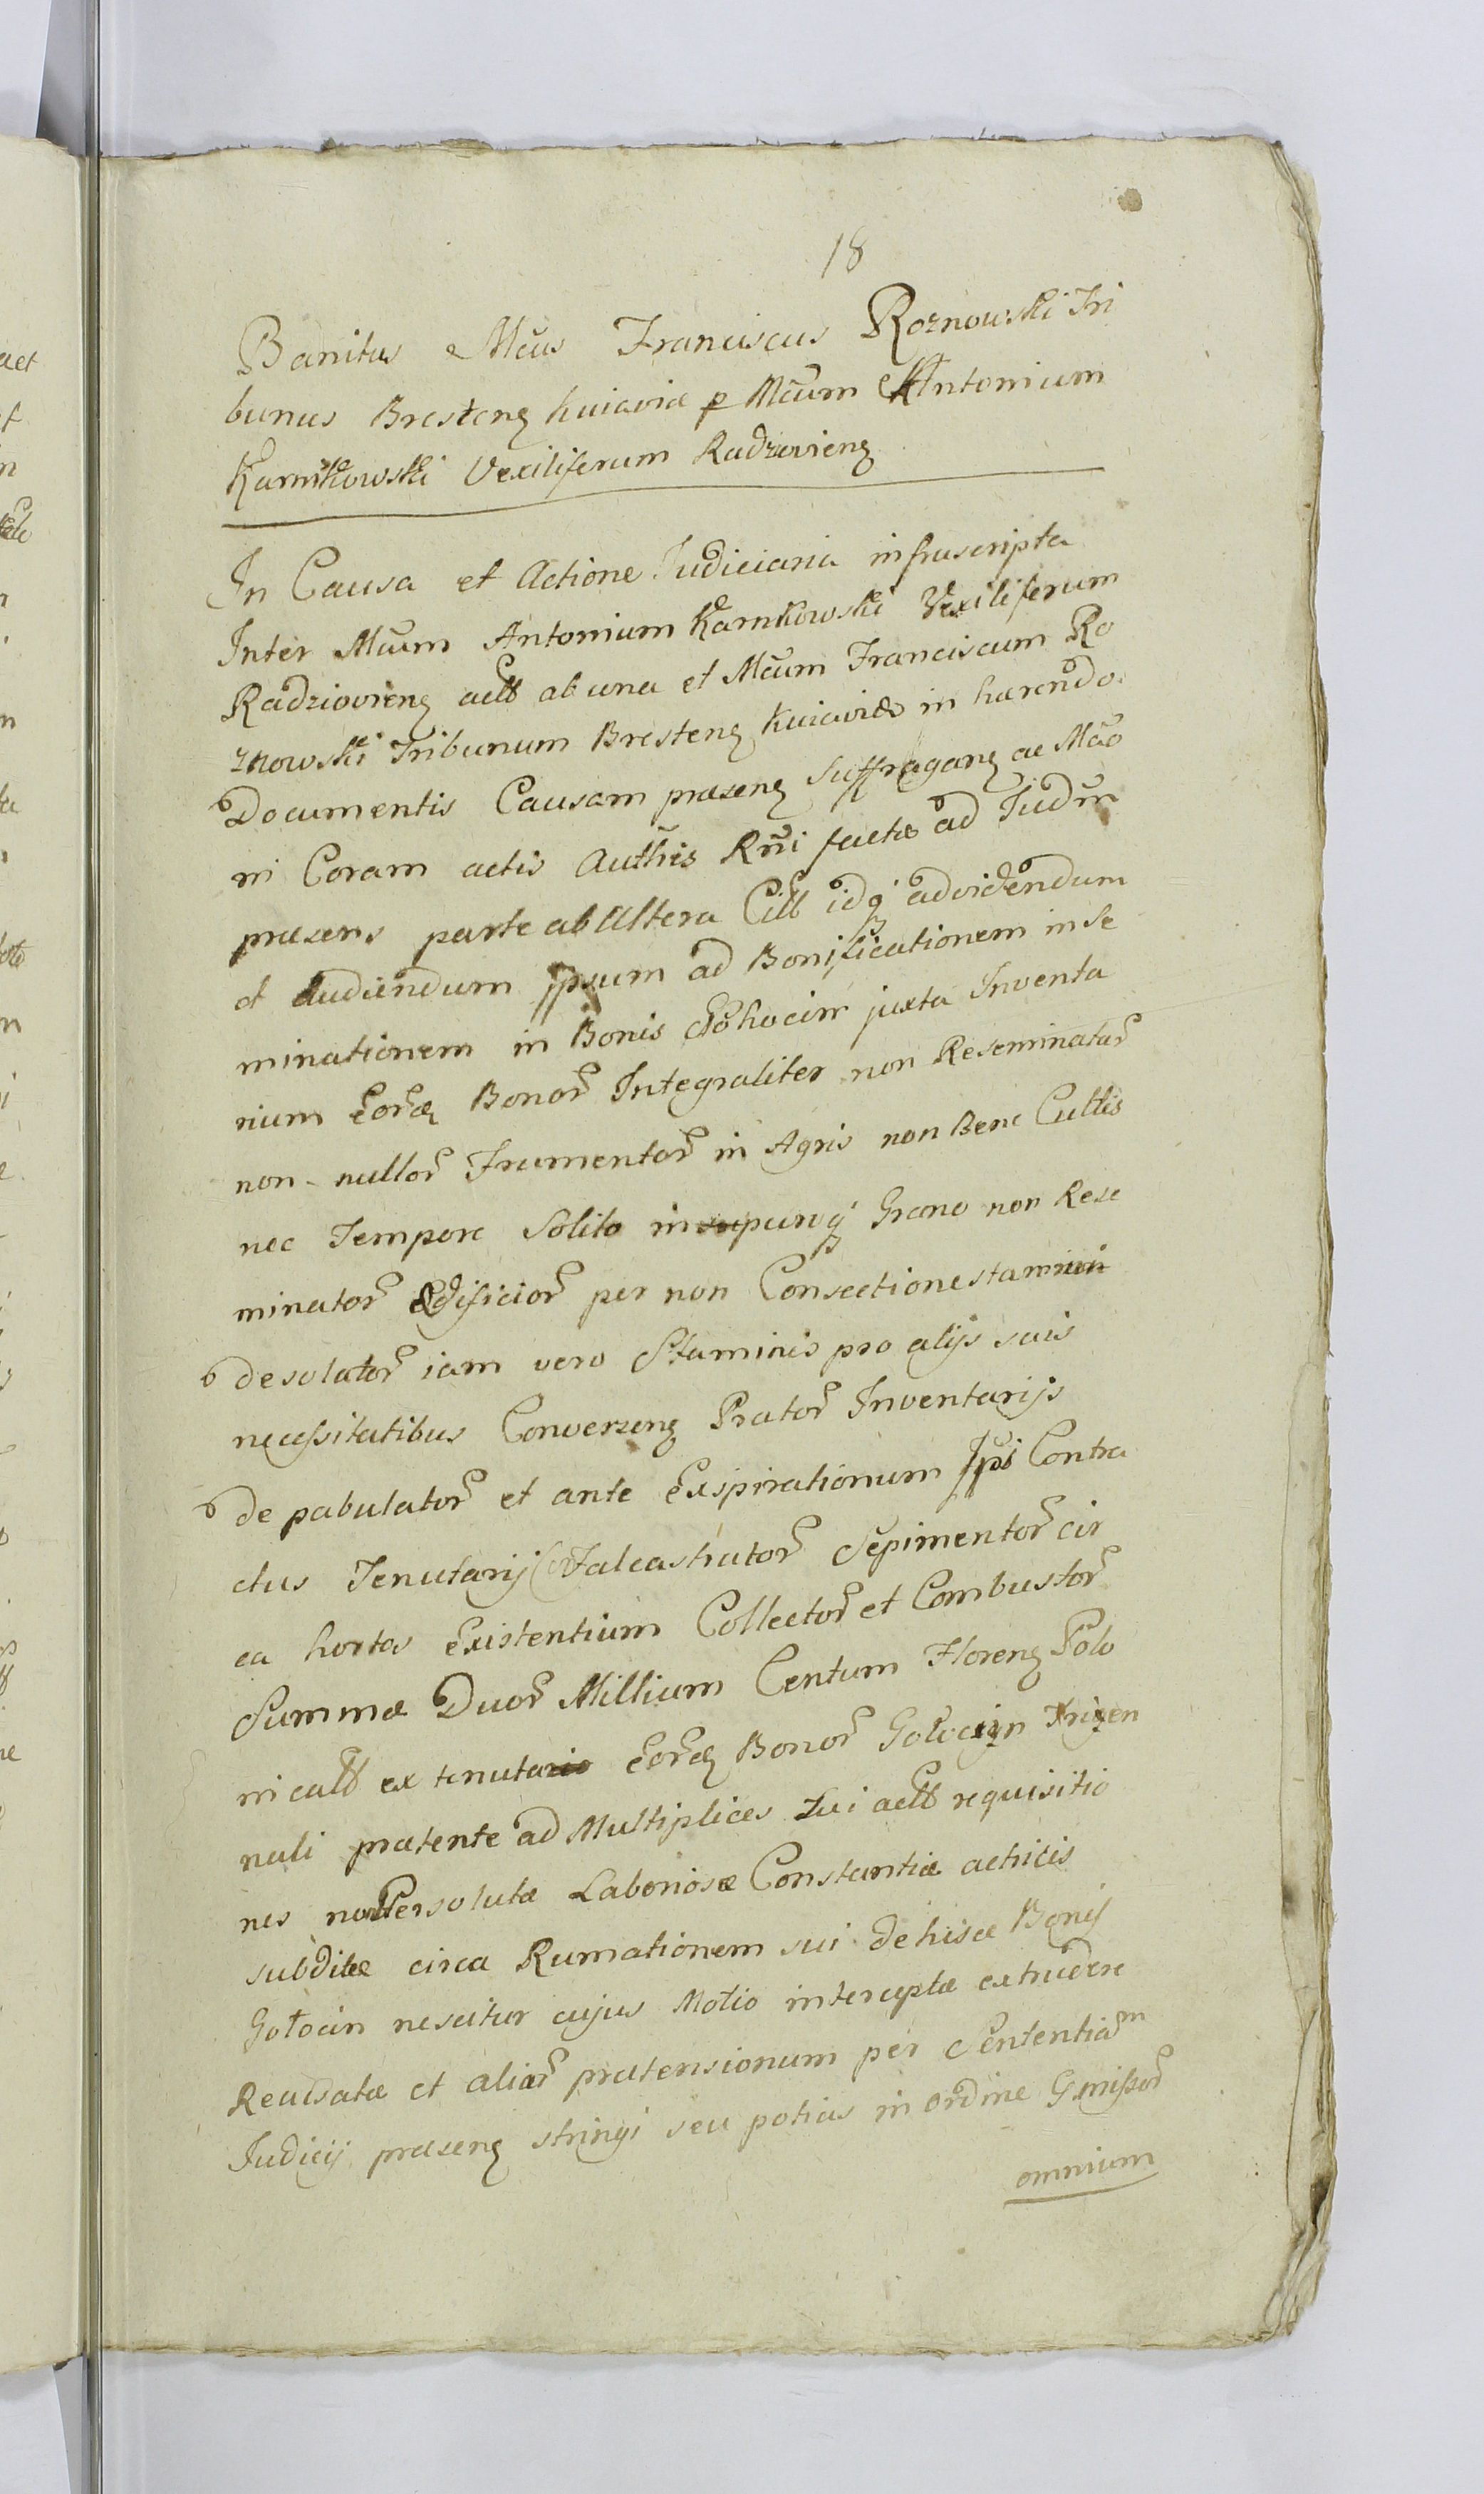 18
Banitus Mcus Franciscus Roznowski Tri
bunus Bresteñ kuiaviæ p Mcum Antonium
Karnkowski Vexiliferum Radzievieñ
In Causa et Actione Judiciaria infrascripta
Inter Mcum Antonium Karnkowski Vexiliferum
Radziovieñ ab una et Mcum Franciscum Ro
znowski Tribunum Bresteñ Kuiaviæ in hærendo
Documentis Causam præseñ Suffragañ ac Mão
ni Coram actis Authis Rñi factæ ad Judm
præsens parte ab Altera idq advidendum
et Audiendum Ipsum ad Bonificationem inse
minationem in Bonis juxta Inventa
rium Bonor Integraliter non Reseminatar
non-nullor Frumentor in Agris non Bene Cultis
nec Tempore Solito puroq Grano non Rese
minator Ædificior per non Consectione
desolator iam vero Staminis pro alijs suis
necessitatibus Converseñ Prator Inventarijs
depabulator et ante Exspirationum Ipsi Contra
ctus Tenutarij falcastrator Sepimentor cir
ca hortos Existentium Collector et Combustor
Summæ Duor Millium Centum Floreñ Polo
ex Bonor Golocin
nali prætente ad Multiplices sui requisitio
nes non Persolutæ Laboriosæ Constantiæ actricis
subditæ circa Rumationem sui de hisce Bonis
Gołocin nescitur cujus Motio interceptæ extrudere
Recusatæ et aliar prætensionum per Sententiam
Judicij præseñ stringi seu potius in ordine
omnium